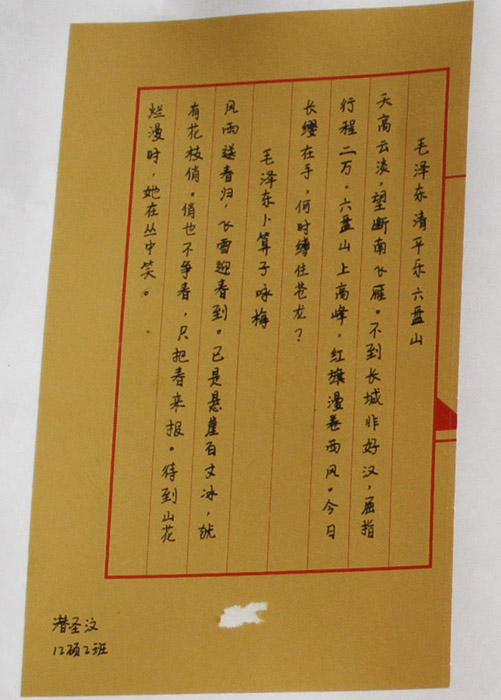 毛泽东清平乐六盘山
天高云淡，望断南飞雁。不到长城非好汉，屈指
行程二万。六盘山上高峰，红旗漫卷西风。今日
长缨在手，何时缚住苍龙？
毛泽东卜算子咏梅
风雨送春归，飞雪迎春到。已是悬崖百丈冰，犹
有花枝俏。俏也不争春，只把春来报。待到山花
烂漫时，她在丛中笑。
潜圣汶
12硕2班